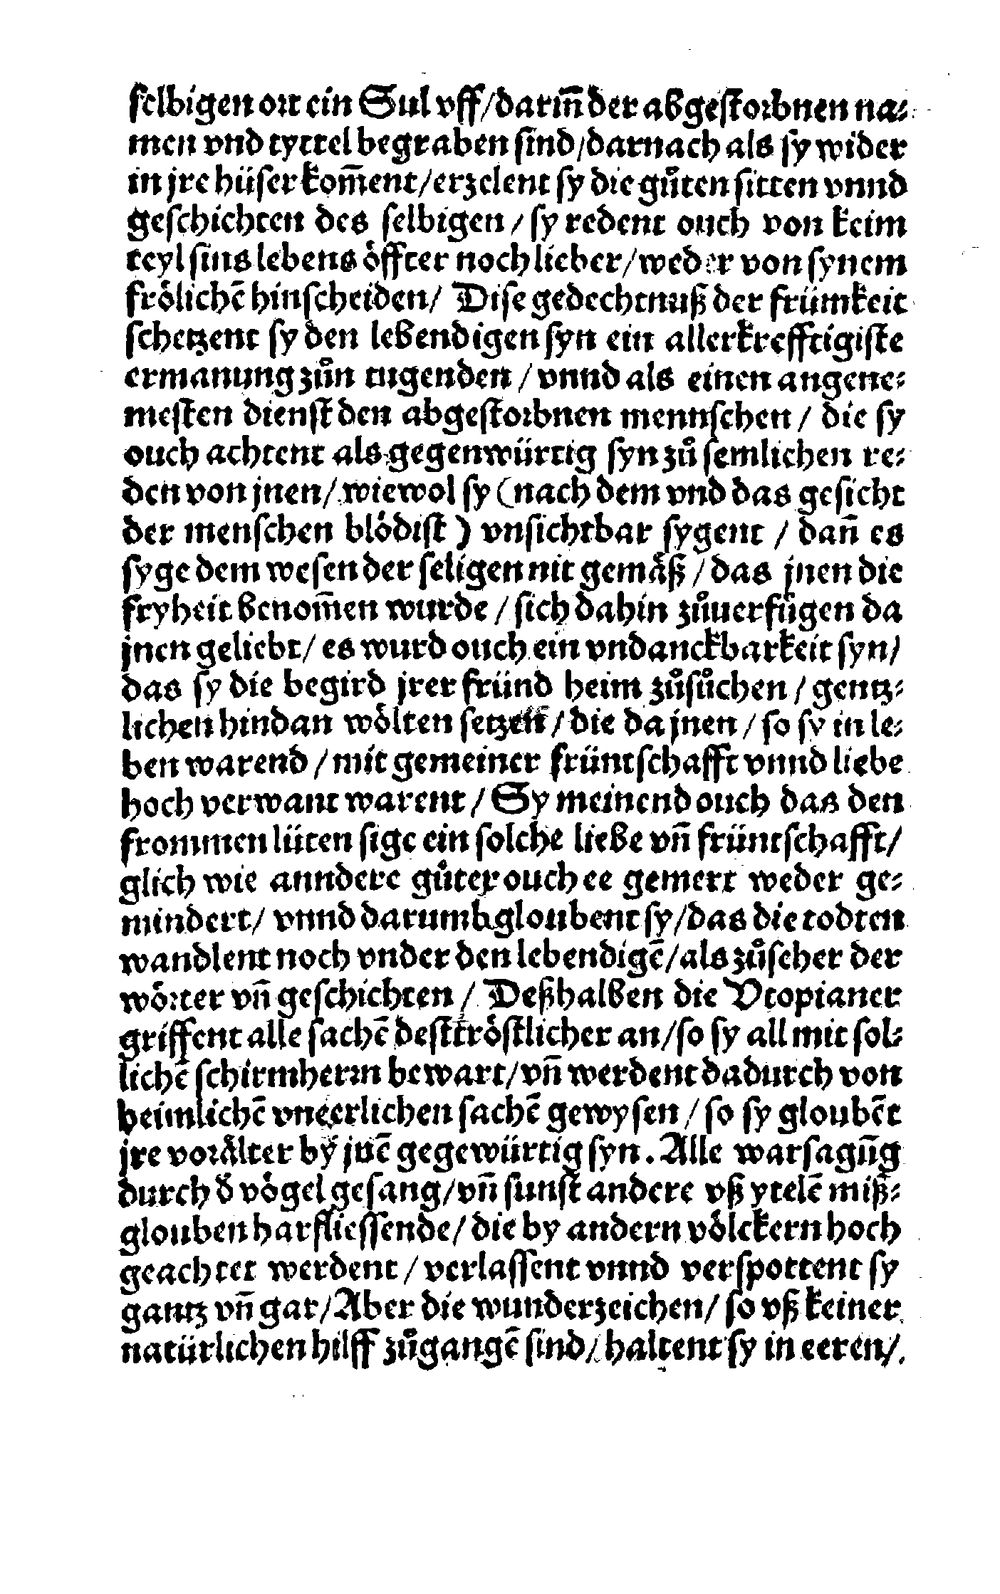 selbigen ort ein Sul vff/darm̃ der abgestorbnen na-
men vnd tyttel begraben sind/darnach als sy wider
in jre hüser kom̃ent/erzelent sy die gůten sitten vnnd
geschichten des selbigen/sy redent ouch von keim
teyl sins lebens öffter noch lieber/weder von synem
frölichẽ hinscheiden/ Dise gedechtnuß der frümkeit
schetzent sy den lebendigen syn ein allerkrefftigiste
ermanung zůn tugenden/vnnd als einen angene-
mesten dienst den abgestorbnen mennschen/ die sy
ouch achtent als gegenwürtig syn zů semlichen re-
den von jnen/wiewol sy (nach dem vnd das gesicht
der menschen blöd ist) vnsichtbar sygent/dañ es
syge dem wesen der seligen nit gemäß/das jnen die
fryheit benom̃en wurde/sich dahin zůuerfügen da
jnen geliebt/es wurd ouch ein vndanckbarkeit syn/
das sy die begird jrer fründ heim zůsůchen/gentz-
lichen hindan wölten setzen/die da jnen/so sy in le-
ben warend/mit gemeiner früntschafft vnnd liebe
hoch verwant warent/Sy meinend ouch das den
frommen lüten sige ein solche liebe vñ früntschafft/
glich wie anndere gůter ouch ee gemert weder ge-
mindert/ vnnd darumb gloubent sy/das die todten
wandlent noch vnder den lebendigẽ/als zůseher der
wörter vñ geschichten/ Deßhalben die Vtopianer
griffent alle sachẽ dest tröstlicher an/so sy all mit sol-
lichẽ schirmherrn bewart/vñ werdent dadurch von
heimlichẽ vneerlichen sachẽ gewysen/so sy gloubẽt
jre vorälter by jnẽ gegewürtig syn. Alle warsagũg
durch d̕ vögel gesang/vñ sunst andere vß ytelẽ miß-
glouben harfliessende/die by andern völckern hoch
geachtet werdent/verlassent vnnd verspottent sy
gantz vñ gar/Aber die wunderzeichen/so vß keiner
natürlichen hilff zůgangẽ sind/haltent sy in eeren/